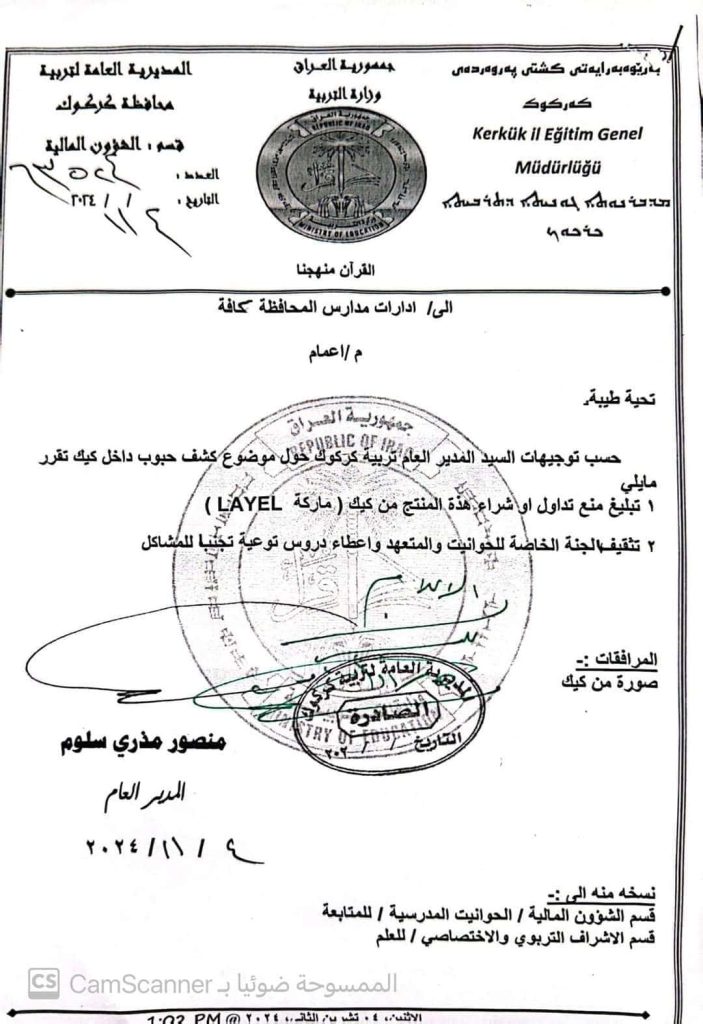 المديرية العامة لتربية
محافظة كركوك
قسم : الشؤون المالية
العدد :
التاريخ : ٤ / ١١ / ٢٠٢٤
جمهورية العراق
وزارة التربية
REPUBLIC OF IRAQ
MINISTRY OF EDUCATION
القرآن منهجنا
بەرێوەبەرایەتی گشتی پەروەردەی
کەرکوک
Kerkük il Eğitim Genel
Müdürlüğü
الى/ ادارات مدارس المحافظة كافة
م /اعمام
تحية طيبة.
حسب توجيهات السيد المدير العام تربية كركوك حول موضوع كشف حبوب داخل كيك تقرر
مايلي
١ تبليغ منع تداول او شراء هذة المنتج من كيك ( ماركة LAYEL )
٢ تثقيف الجنة الخاصة للحوانيت والمتعهد واعطاء دروس توعية تجنبا للمشاكل
جمهورية العراق
REPUBLIC OF IRAQ
MINISTRY OF EDUCATION
المرافقات :-
صورة من كيك
المديرية العامة لتربية كركوك
الصادرة
التاريخ / / ٢٠٢
منصور مذري سلوم
المدير العام
٤ / ١١ / ٢٠٢٤
نسخه منه الى :-
قسم الشؤون المالية / الحوانيت المدرسية / للمتابعة
قسم الاشراف التربوي والاختصاصي / للعلم
CS الممسوحة ضوئيا بـ CamScanner
الاثنين، ٠٤ تشرين الثاني، ٢٠٢٤ @ 1:02 PM